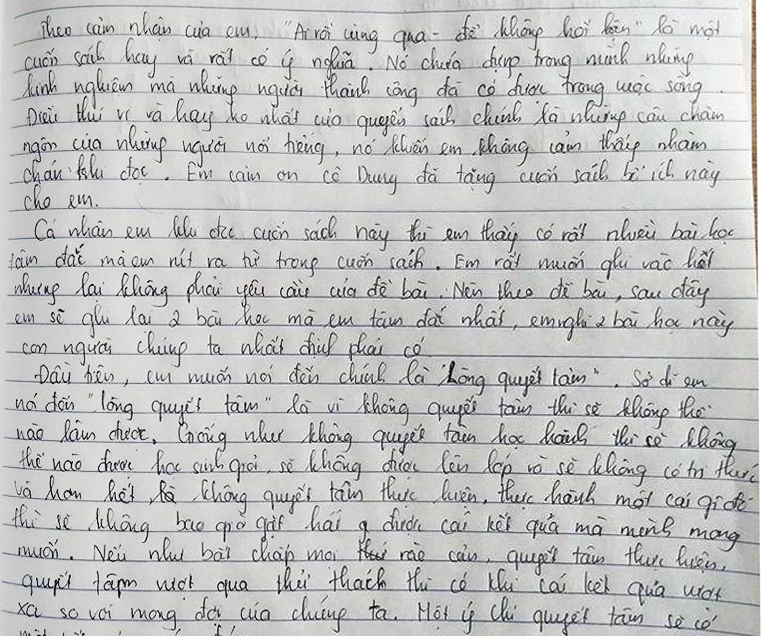 Theo cảm nhận của em, "Ai rồi cũng qua - để không hối tiên" là một
cuốn sách hay và rất có ý nghĩa. Nó chứa đựng trong mình những
kinh nghiệm mà những người thành công đã có được trong cuộc sống.
Điều thú vị và hay ho nhất của quyển sách chính là những câu châm
ngôn của những người nổi tiếng, nó khiến em không cảm thấy nhàm
chán khi đọc. Em cảm ơn cô Dung đã tặng cuốn sách bổ ích này
cho em.
Cá nhân em khi đọc cuốn sách này thì em thấy có rất nhiều bài học
tâm đắc mà em rút ra từ trong cuốn sách. Em rất muốn ghi vào hết
nhưng lại không phải yêu cầu của đề bài. Nên theo đề bài, sau đây
em sẽ ghi lại 2 bài học mà em tâm đắc nhất, em nghĩ 2 bài học này
con người chúng ta nhất định phải có
Đầu tiên, em muốn nói đến chính là "Lòng quyết tâm". Sở dĩ em
nói đến "lòng quyết tâm" là vì không quyết tâm thì sẽ không thể
nào làm được. Giống như không quyết tâm học hành thì sẽ không
thể nào được học sinh giỏi, sẽ không được lên lớp và sẽ không có tri thức
và hơn hết, là không quyết tâm thực hiện, thực hành một cái gì đó
thì sẽ không bao giờ gặt hái đươc cái kết quả mà mình mong
muốn. Nếu như bất chấp mọi rào cản, quyết tâm thực hiện,
quyết tâm vượt qua thử thách thì có khi cái kết quả vượt
xa so với mong đợi của chúng ta. Một ý chí quyết tâm sẽ có